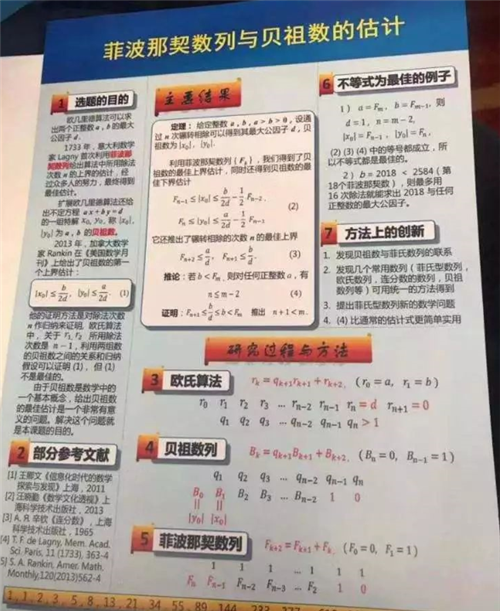 菲波那契数列与贝祖数的估计
1 选题的目的
欧几里德算法可以求
出两个正整数 a, b 的最大
公因子 d。
1733 年，意大利数学
家 Lagny 首次利用菲波那
契数列给出算法中所用除法
次数 n 的上界的估计，经
过众多人的努力，最终得到
最佳估计。
扩展欧几里德算法还给
出不定方程 ax + by = d
的一组特解 x₀, y₀，称 |x₀|,
|y₀| 为 a, b 的贝祖数。
2013 年，加拿大数学
家 Rankin 在《美国数学月
刊》上给出了贝祖数的第一
个上界估计：
|x₀| ≤ b/2d, |y₀| ≤ a/2d (1)
他的证明方法是对除法次数
n 作归纳来证明，欧氏算法
中，关于 r₁, r₂ 所用除法
次数是 n − 1，利用两组数
的贝祖数之间的关系和归纳
假设可以证明 (1)，但 (1)
不是最佳的。
由于贝祖数是数学中的
一个基本概念，给出贝祖数
的最佳估计是一个非常有意
义的问题。解决这个问题就
是本课题的目的。
2 部分参考文献
[1] 王鄂文《信息化时代的数学
探索与发现》上海，2011
[2] 汪晓勤《数学文化透视》上
海科学技术出版，2013
[3] А. Я. 辛钦《连分数》，上海
科学技术出版，1965
[4] T. F. de Lagny, Mem. Acad.
Sci. Paris, 11 (1733), 363-4
[5] S. A. Rankin, Amer. Math.
Monthly,120(2013)562-4
主要结果
定理：给定整数 a, b, a > b > 0，设通
过 n 次辗转相除可以得到其最大公因子 d，贝
祖数为 |x₀|, |y₀|。
利用菲波那契数列 {Fₖ}，我们得到了贝
祖数的最佳上界估计，同时还得到贝祖数的最
佳下界估计
Fₙ₋₁ ≤ |x₀| ≤ b/2d − 1/2 Fₙ₋₂,
(2)
Fₙ ≤ |y₀| ≤ a/2d − 1/2 Fₙ₋₁.
它还推出了辗转相除的次数 n 的最佳上界
Fₙ₊₂ ≤ a/d, Fₙ₊₁ ≤ b/d. (3)
推论：若 b < Fₘ，则对任何正整数 a，有
n ≤ m − 2 (4)
证明：Fₙ₊₁ ≤ b/d ≤ b < Fₘ 推出 n + 1 < m.
研究过程与方法
3 欧氏算法 rₖ = qₖ₊₁rₖ₊₁ + rₖ₊₂, (r₀ = a, r₁ = b)
r₀ r₁ r₂ r₃ ... rₙ₋₂ rₙ₋₁ rₙ = d rₙ₊₁ = 0
q₁ q₂ q₃ ... qₙ₋₂ qₙ₋₁ qₙ > 1
4 贝祖数列 Bₖ = qₖ₊₁Bₖ₊₁ + Bₖ₊₂, (Bₙ = 0, Bₙ₋₁ = 1)
q₁ q₂ q₃ ... qₙ₋₂ qₙ₋₁ qₙ
B₀ B₁ B₂ B₃ ... Bₙ₋₂ 1 0
|| ||
|y₀| |x₀|
5 菲波那契数列 Fₖ₊₂ = Fₖ₊₁ + Fₖ, (F₀ = 0, F₁ = 1)
1 1 1 ... 1 1 1
Fₙ Fₙ₋₁ Fₙ₋₂ Fₙ₋₃ ... F₂ 1 0
6 不等式为最佳的例子
1） a = Fₘ, b = Fₘ₋₁, 则
d = 1, n = m − 2,
|x₀| = Fₙ₋₁, |y₀| = Fₙ.
(2) (3) (4) 中的等号都成立，所
以不等式都是最佳的。
2） b = 2018 < 2584 (第
18个菲波那契数)，则最多用
16 次除法就能求出 2018 与任何
正整数的最大公因子。
7 方法上的创新
1. 发现贝祖数与菲氏数列的联系
2. 发现几个常用数列（菲氏型数列，
欧氏数列，连分数的数列，贝祖
数列等）可用统一的方法得到
3. 提出菲氏型数列新的数学问题
4. (4) 比通常的估计式更简单实用
1, 1, 2, 3, 5, 8, 13, 21, 34, 55, 89, 144, 233, 377